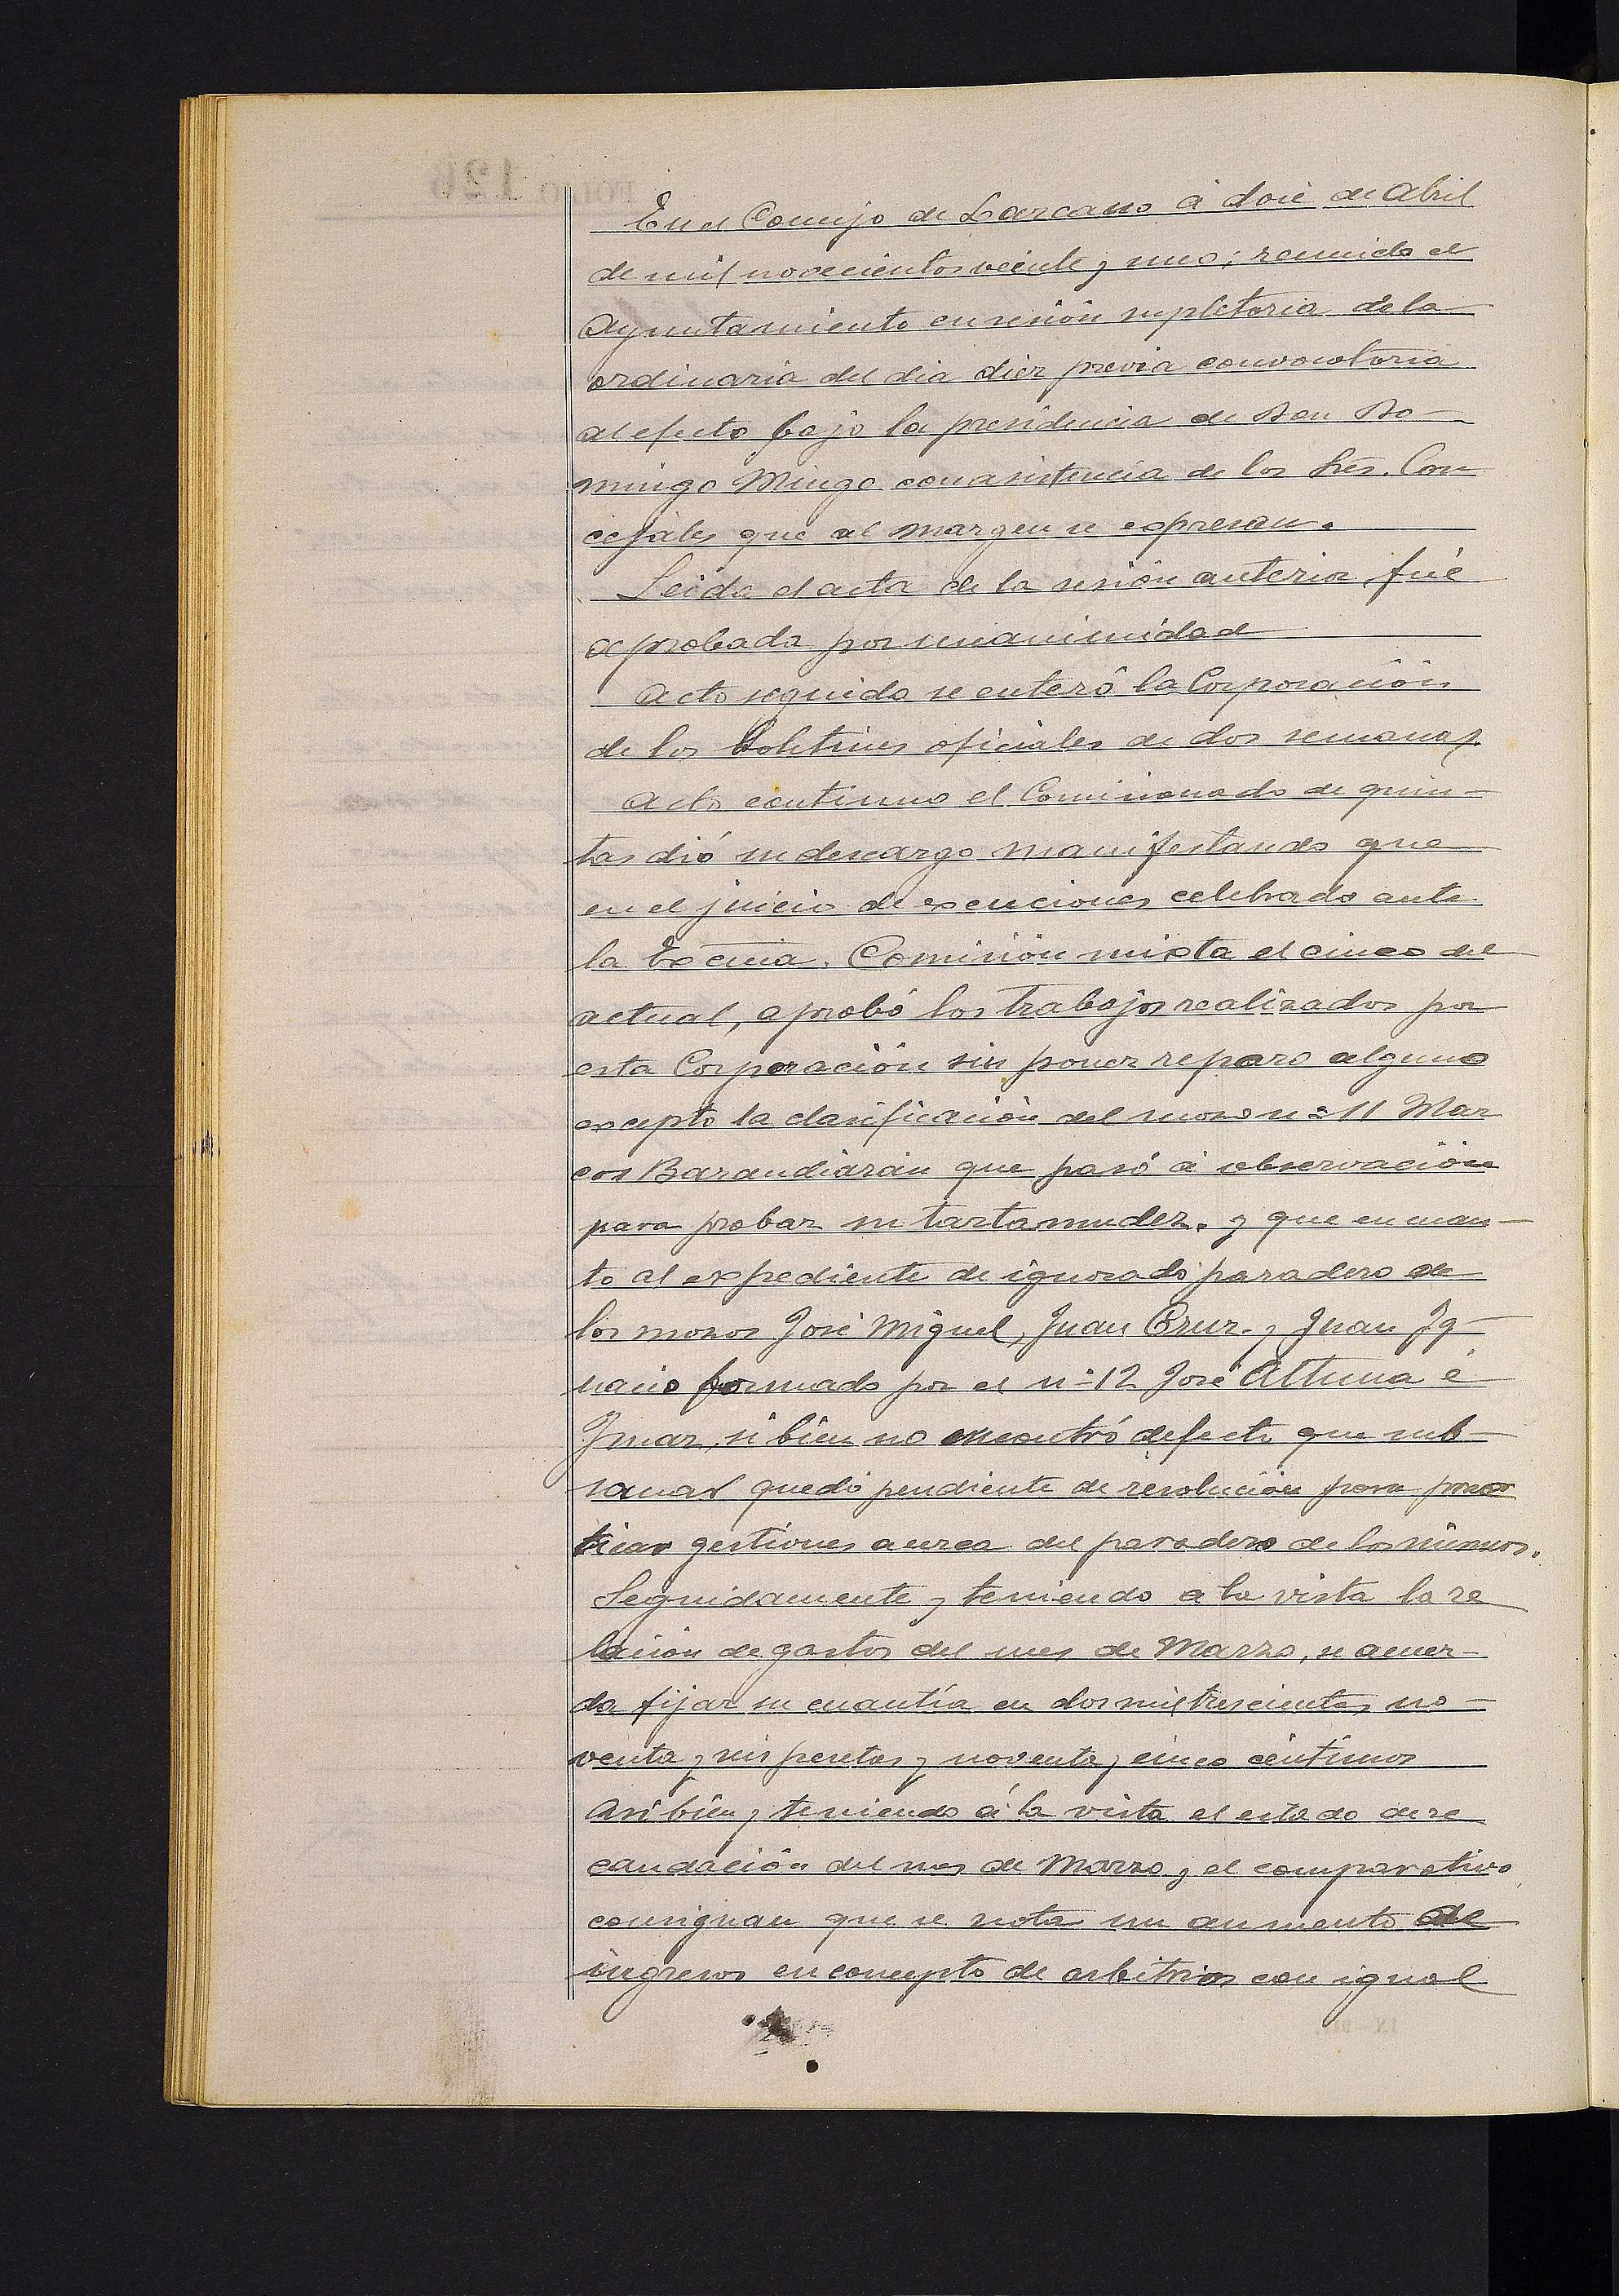 En el Concejo de Lazcano á doce de Abril
de mil novecientos veinte y uno; reunido el
Ayuntamiento en sesión supletoria de la
ordinaria del dia diez previa convocatoria
al efecto bajo la presidencia de Don Do-
mingo Mingo con asistencia de los Sres. Con
cejales que al margen se expresan.
Leida el acta de la sesión anterior fué
aprobada por unanimidad
Acto seguido se enteró la Corporación
de los Boletines oficiales de dos semanas.
Acto continuo el Comisionado de quin-
tas dió su descargo manifestando que
en el juicio de exenciones celebrado ante
la Excma. Comisión mixta el cinco del
actual, aprobó los trabajos realizados por
esta Corporación sin poner reparo alguno
excepto la clasificación del mozo nº 11 Mar
cos Barandiarán que pasó á observación
para probar su tartamudez. y que en cuan-
to al expediente de ignorado paradero de
los mozos José Miguel, Juan Cruz y Juan Ig-
nacio formado por el nº 12 José Altuna é
Imaz, si bien no encontró defecto que sub-
sanar quedó pendiente de resolución para prac
ticar gestiones acerca del paradero de los mismos.
Seguidamente y teniendo a la vista la re
lación de gastos del mes de Marzo, se acuer-
da fijar su cuantía en dos mil trescientas no-
venta y seis pesetas y noventa y cinco céntimos
Asi bien y teniendo á la vista el estado de re
caudación del mes de Marzo y el comparativo
consignan que se nota un aumento de
ingresos en concepto de arbitrios con igual